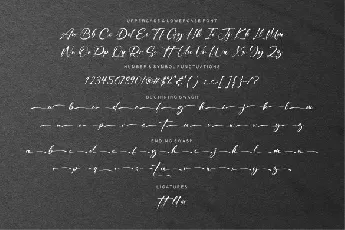 UPPERCASE & LOWERCASE FONT
Aa Bb Cc Dd Ee Ff Gg Hh Ii Jj Kk Ll Mm
Nn Oo Pp Qq Rr Ss Tt Uu Vv Ww Xx Yy Zz
NUMBER & SYMBOL PUNCTUATIONS
BEGINNING SWASH
a b c d e f g h i j k l m
n o p q r s t u v w x y z
ENDING SWASH
a b c d e f g h i j k l m
n o p q r s t u v w x y z
LIGATURES